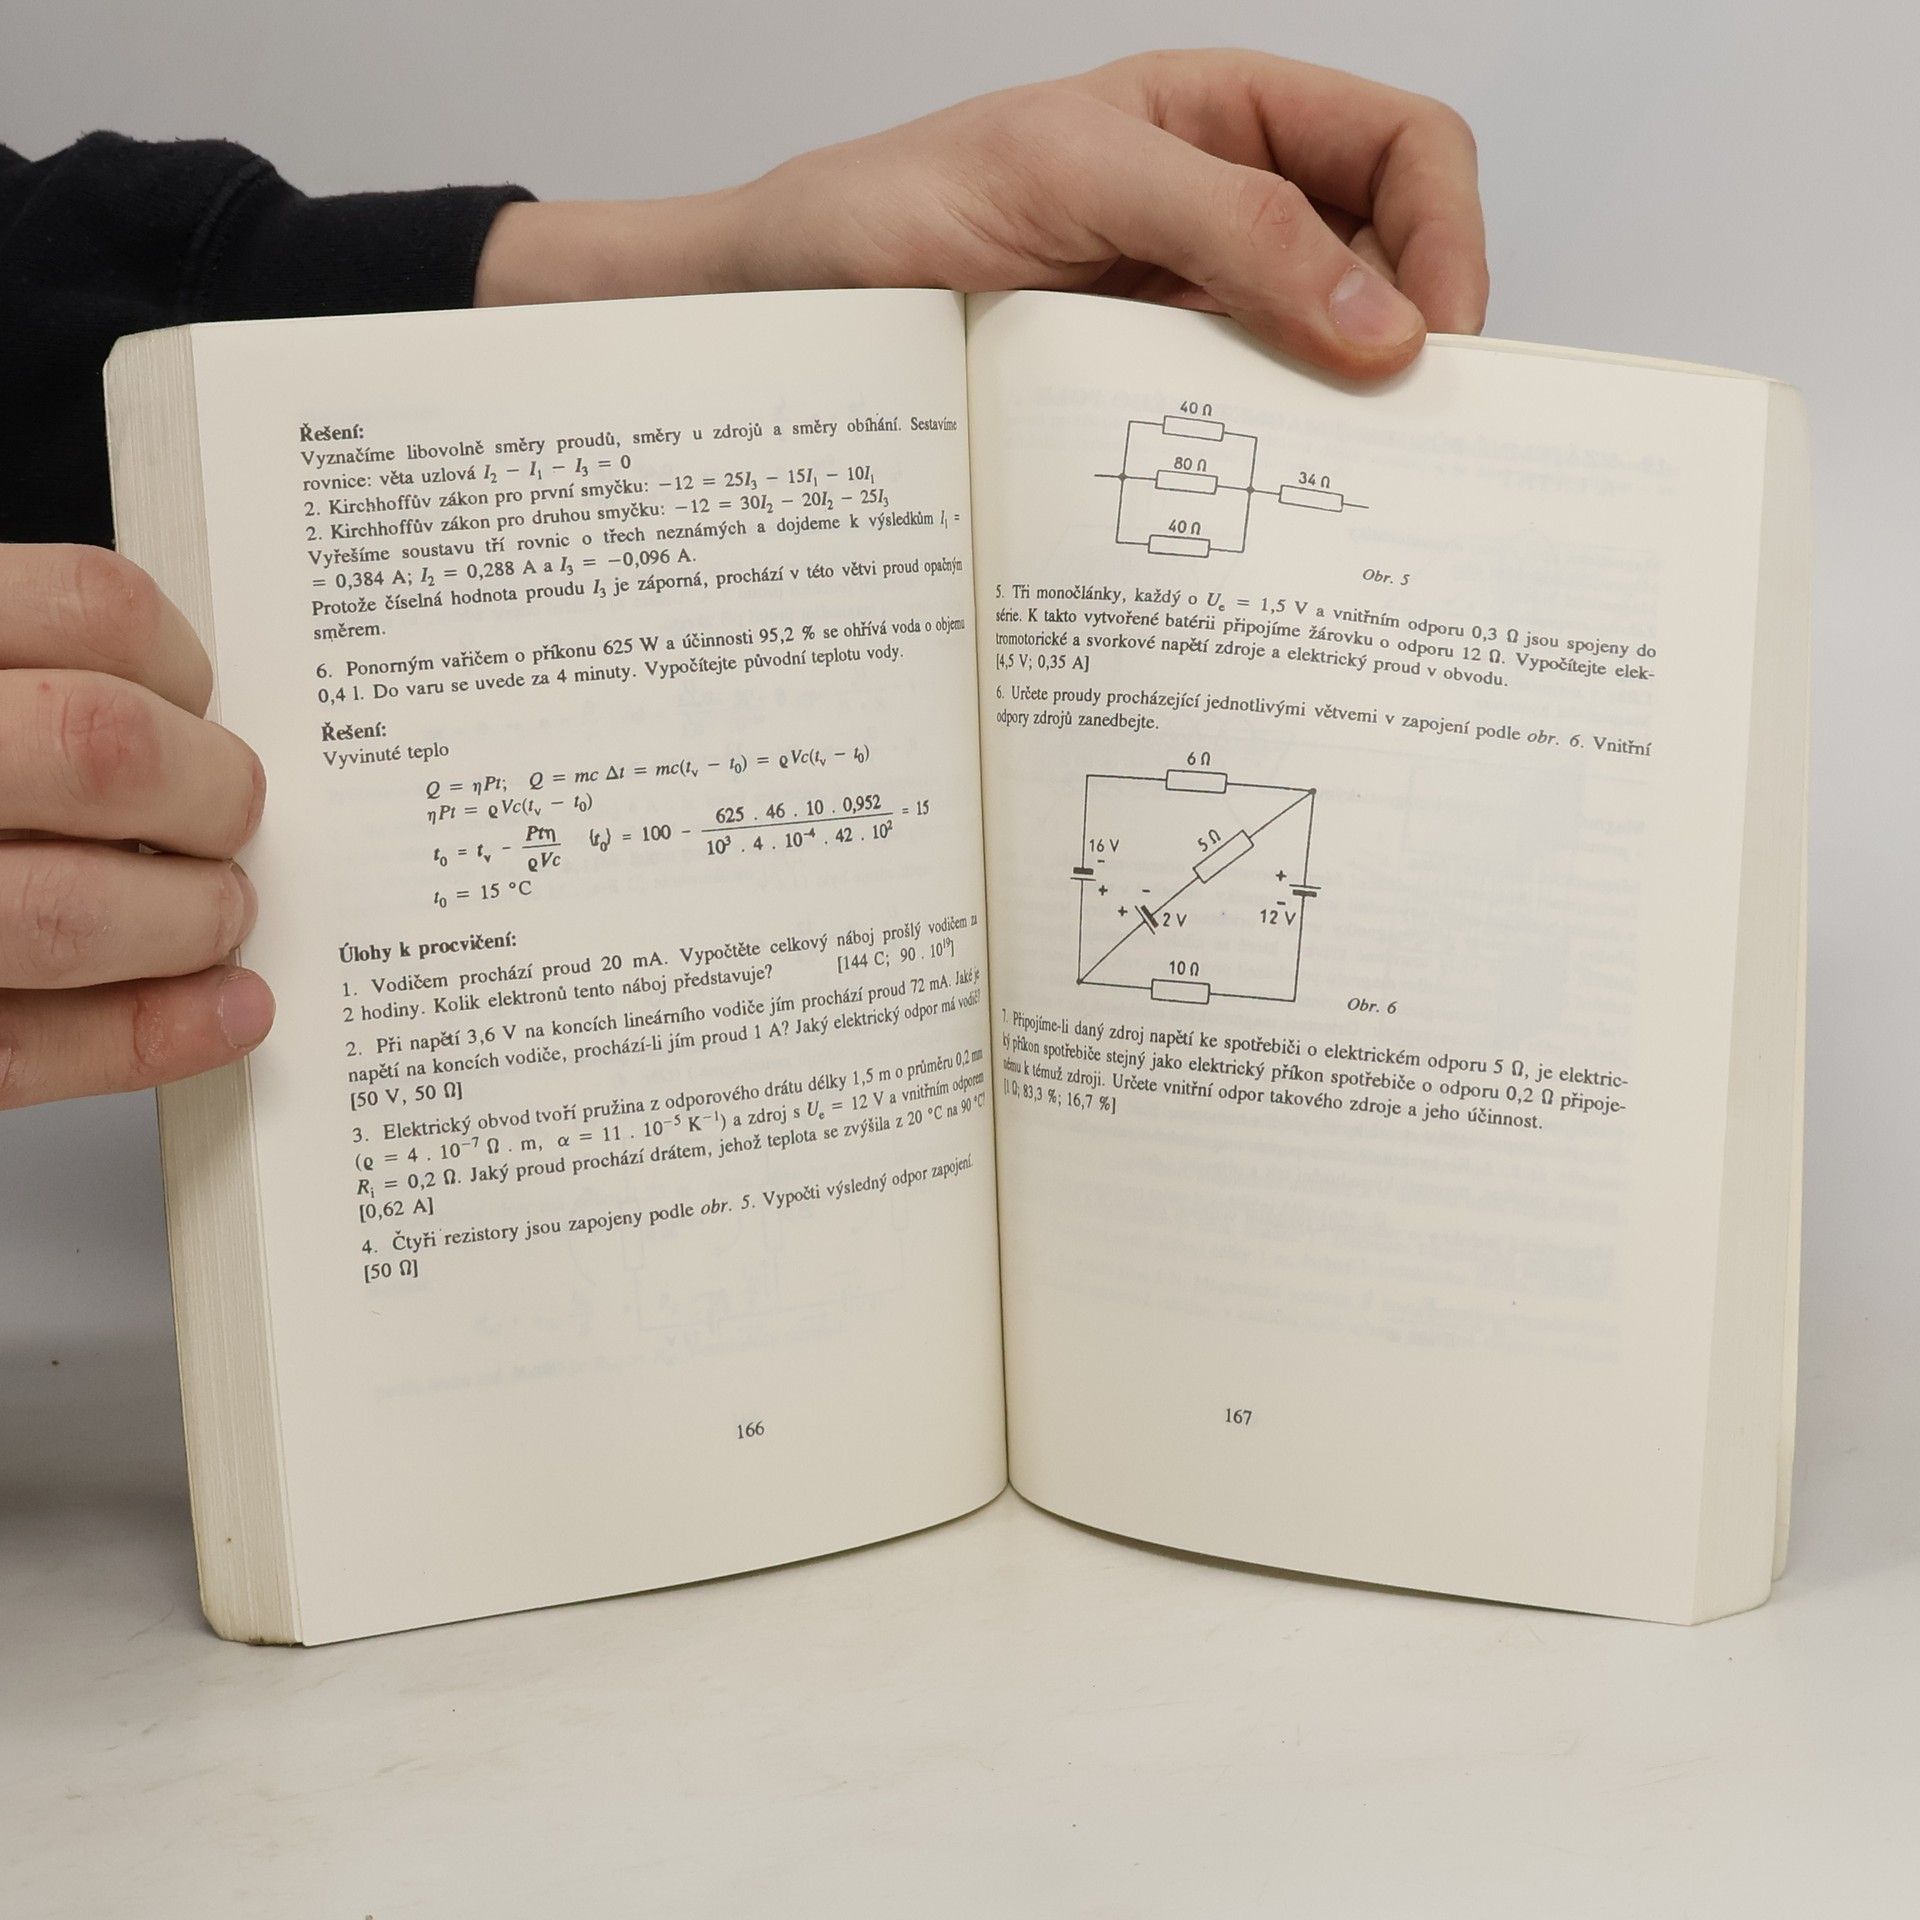 Řešení:
Vyznačíme libovolně směry proudů, směry u zdrojů a směry obíhání. Sestavíme
rovnice: věta uzlová I₂ − I₁ − I₃ = 0
2. Kirchhoffův zákon pro první smyčku: −12 = 25I₃ − 15I₁ − 10I₁
2. Kirchhoffův zákon pro druhou smyčku: −12 = 30I₂ − 20I₂ − 25I₃
Vyřešíme soustavu tří rovnic o třech neznámých a dojdeme k výsledkům I₁ =
= 0,384 A; I₂ = 0,288 A a I₃ = −0,096 A.
Protože číselná hodnota proudu I₃ je záporná, prochází v této větvi proud opačným
směrem.
6. Ponorným vařičem o příkonu 625 W a účinnosti 95,2 % se ohřívá voda o objemu
0,4 l. Do varu se uvede za 4 minuty. Vypočítejte původní teplotu vody.
Řešení:
Vyvinuté teplo
Q = ηPt; Q = mc Δt = mc(tᵥ − t₀) = ϱVc(tᵥ − t₀)
ηPt = ϱVc(tᵥ − t₀)
t₀ = tᵥ − Ptη / ϱVc {t₀} = 100 − 625 . 46 . 10 . 0,952 / 10³ . 4 . 10⁻⁴ . 42 . 10² = 15
t₀ = 15 °C
Úlohy k procvičení:
1. Vodičem prochází proud 20 mA. Vypočtěte celkový náboj prošlý vodičem za
2 hodiny. Kolik elektronů tento náboj představuje? [144 C; 90 . 10¹⁹]
2. Při napětí 3,6 V na koncích lineárního vodiče jím prochází proud 72 mA. Jaké je
napětí na koncích vodiče, prochází-li jím proud 1 A? Jaký elektrický odpor má vodič?
[50 V, 50 Ω]
3. Elektrický obvod tvoří pružina z odporového drátu délky 1,5 m o průměru 0,2 mm
(ϱ = 4 . 10⁻⁷ Ω . m, α = 11 . 10⁻⁵ K⁻¹) a zdroj s Uₑ = 12 V a vnitřním odporem
Rᵢ = 0,2 Ω. Jaký proud prochází drátem, jehož teplota se zvýšila z 20 °C na 90 °C?
[0,62 A]
4. Čtyři rezistory jsou zapojeny podle obr. 5. Vypočti výsledný odpor zapojení.
[50 Ω]
166
40 Ω
80 Ω
34 Ω
40 Ω
Obr. 5
5. Tři monočlánky, každý o Uₑ = 1,5 V a vnitřním odporu 0,3 Ω jsou spojeny do
série. K takto vytvořené batérii připojíme žárovku o odporu 12 Ω. Vypočítejte elek-
tromotorické a svorkové napětí zdroje a elektrický proud v obvodu.
[4,5 V; 0,35 A]
6. Určete proudy procházející jednotlivými větvemi v zapojení podle obr. 6. Vnitřní
odpory zdrojů zanedbejte.
6 Ω
16 V
−
+
5 Ω
+ −
2 V
+
−
12 V
10 Ω
Obr. 6
7. Připojíme-li daný zdroj napětí ke spotřebiči o elektrickém odporu 5 Ω, je elektric-
ký příkon spotřebiče stejný jako elektrický příkon spotřebiče o odporu 0,2 Ω připoje-
nému k témuž zdroji. Určete vnitřní odpor takového zdroje a jeho účinnost.
[1 Ω; 83,3 %; 16,7 %]
167